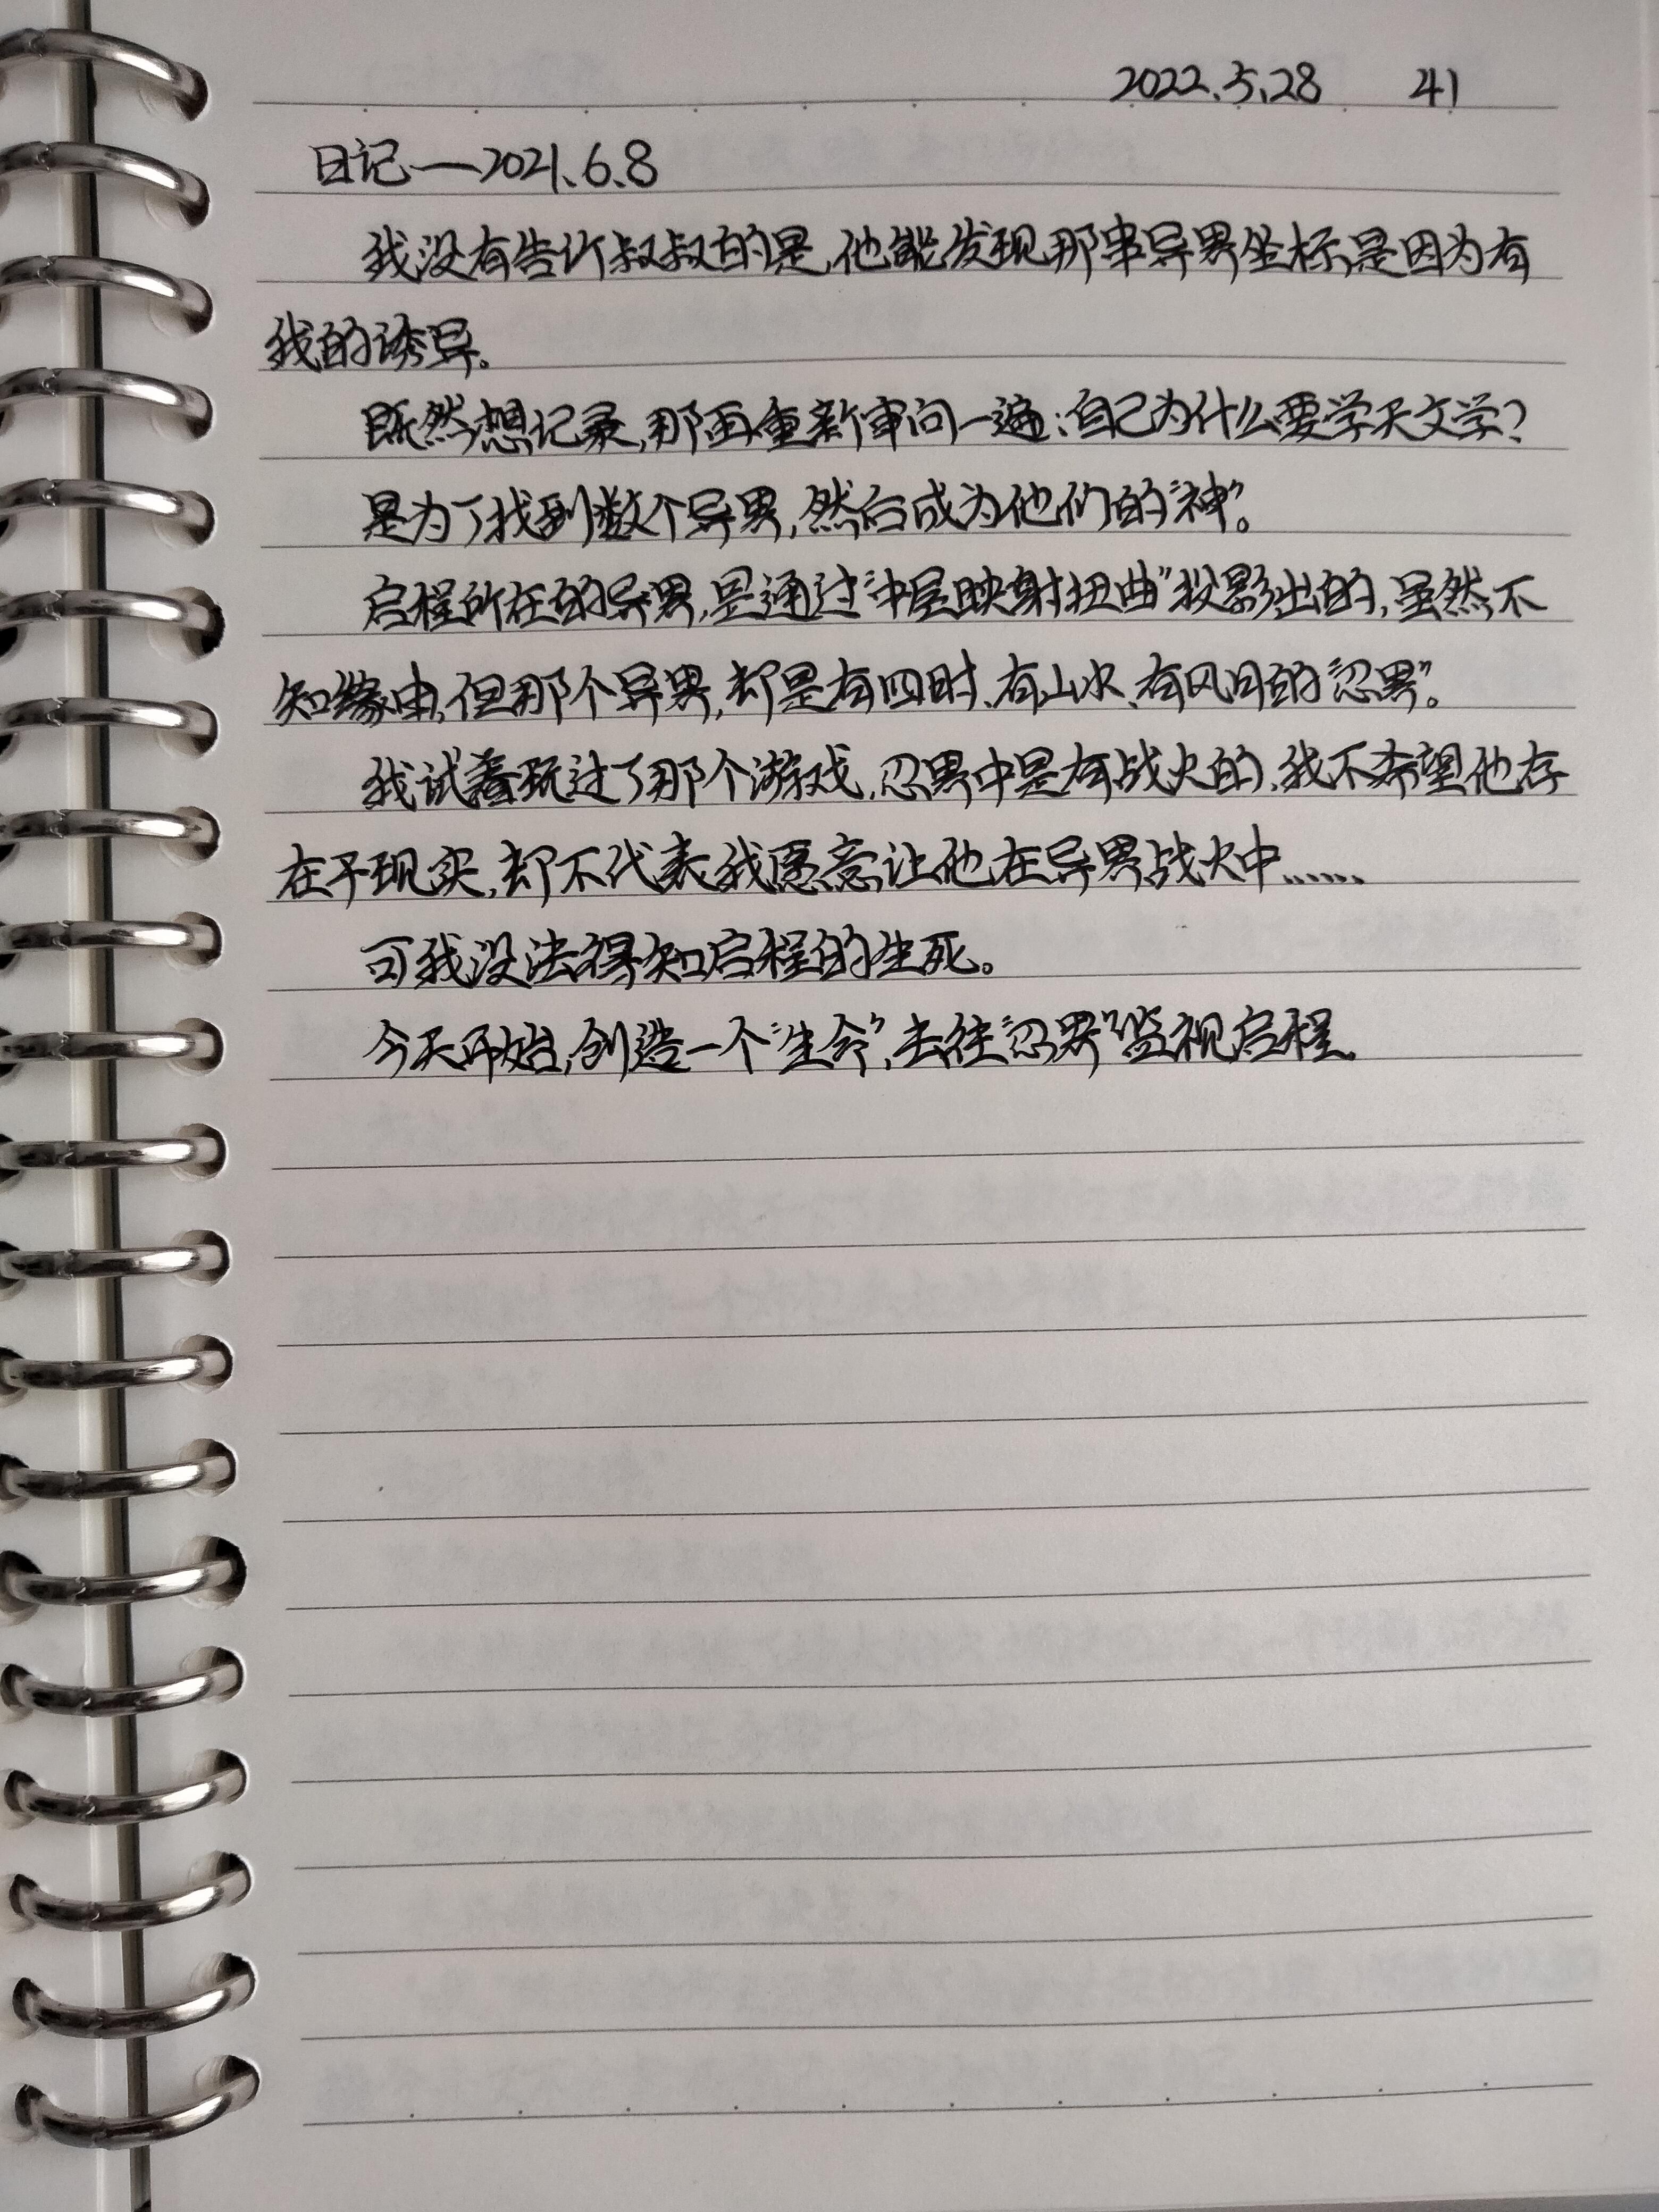 2022.5.28 41
日记——2021.6.8
我没有告诉叔叔的是,他能发现那串异界坐标,是因为有
我的诱导。
既然想记录,那再重新审问一遍:自己为什么要学天文学?
是为了找到数个异界,然后成为他们的“神”。
启程所在的异界,是通过“中层映射扭曲”投影出的,虽然不
知缘由,但那个异界,却是有四时、有山水、有风月的“忍界”。
我试着玩过了那个游戏,忍界中是有战火的,我不希望他存
在于现实,却不代表我愿意让他在异界战火中……
可我没法得知启程的生死。
今天开始,创造一个“生命”,去往“忍界”监视启程。